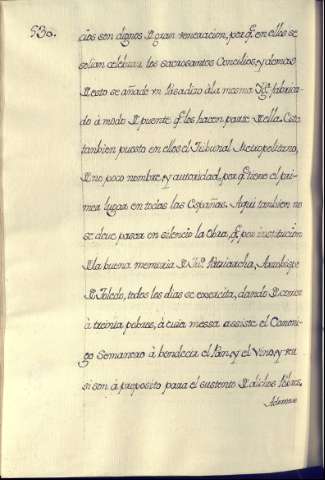 530.
cios son dignos de gran veneracion, por q.e en ellos se
solian celebrar los sacrosantos Concilios, y demas
de esto se añade un Pasadizo à la mesma Yg.a fabrica-
do à modo de puente q.e los hacen parte de ella. Està
tambien puesto en ellos el Tribunal Metropolitano,
de no poco nombre, y autoridad, por q.e tiene el pri-
mer lugar en todas las Españas. Aqui tambien no
se deve pasar en silencio la Obra, q.e por institucion
de la buena memoria de Patriarcha, Arzobispo
de Toledo, todos los dias se exercita, dando de comer
à treinta pobres, à cuia messa assiste el Canoni-
go Semanero à bendecir el Pan, y el Vino, y ver
si son à proposito para el sustento de dichos Pobres.